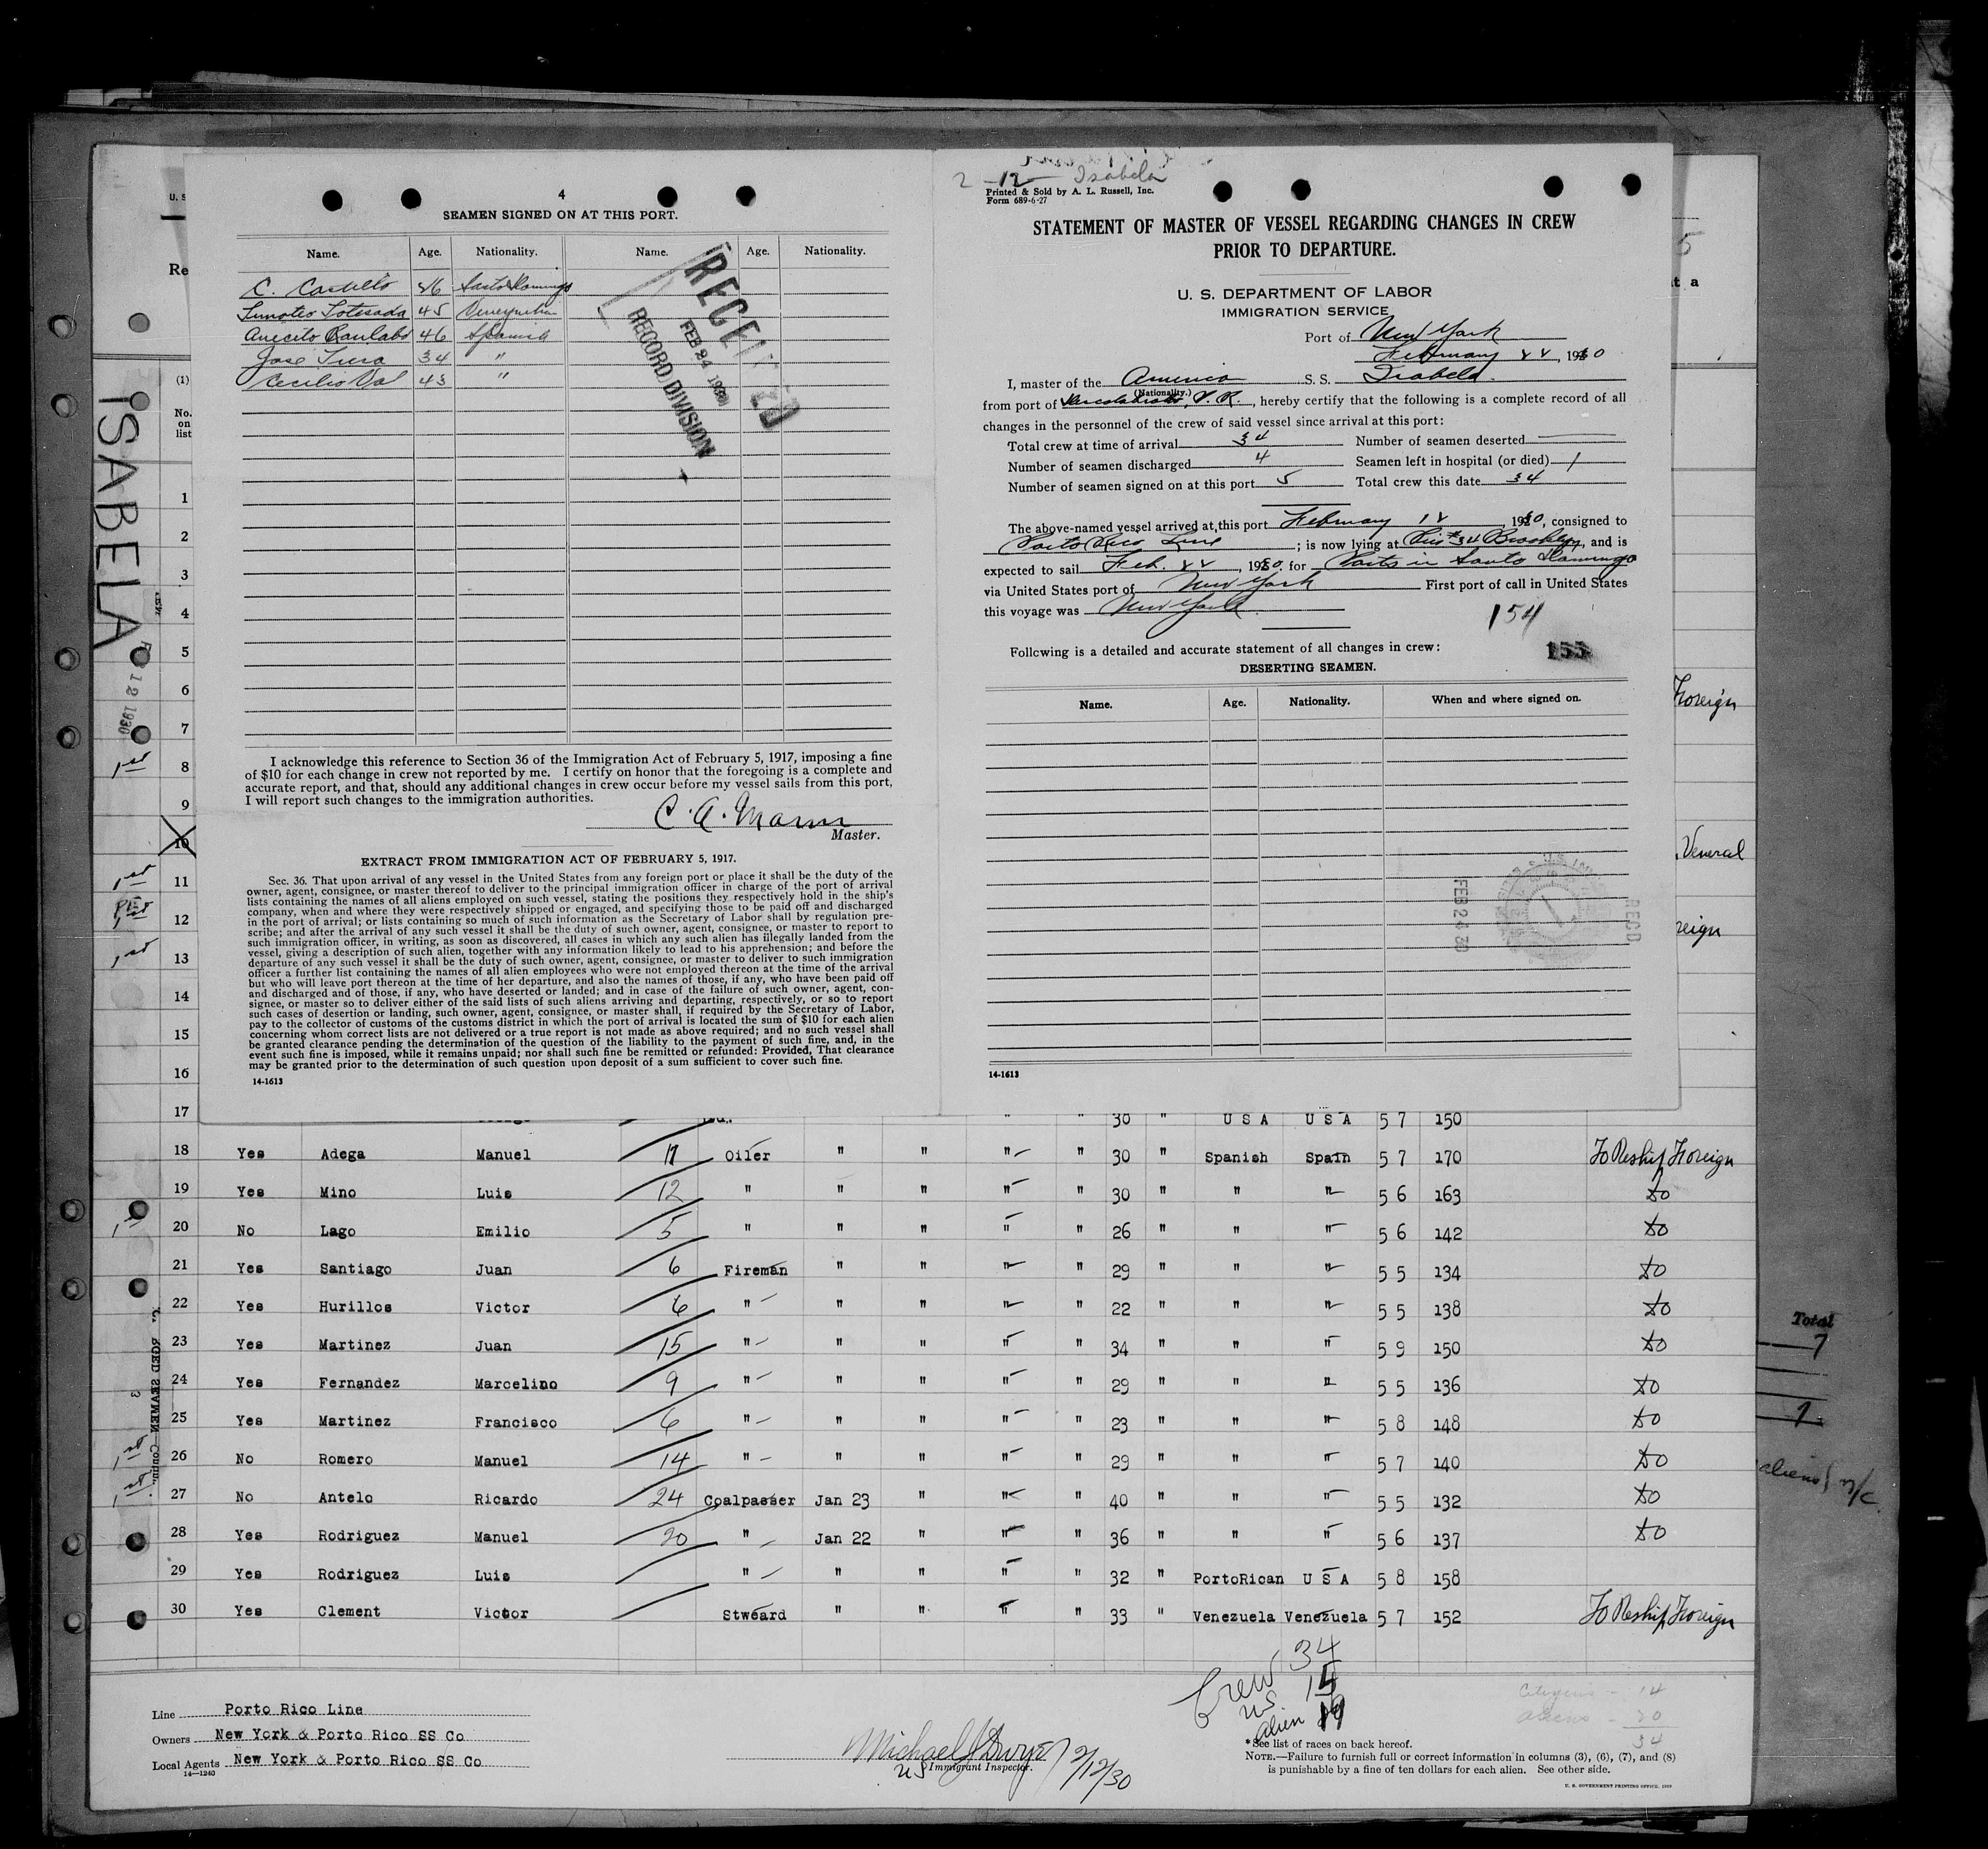 4
SEAMEN SIGNED ON AT THIS PORT.
Name. Age. Nationality. Name. Age. Nationality.
C. Castillo 26 Santo Domingo
45
46 Spanish
Jose 34 "
Cecilio Val 43 "
RECEIVED
FEB 24 1930
RECORD DIVISION
I acknowledge this reference to Section 36 of the Immigration Act of February 5, 1917, imposing a fine
of $10 for each change in crew not reported by me. I certify on honor that the foregoing is a complete and
accurate report, and that, should any additional changes in crew occur before my vessel sails from this port,
I will report such changes to the immigration authorities.
C. A. Mann
Master.
EXTRACT FROM IMMIGRATION ACT OF FEBRUARY 5, 1917.
Sec. 36. That upon arrival of any vessel in the United States from any foreign port or place it shall be the duty of the
owner, agent, consignee, or master thereof to deliver to the principal immigration officer in charge of the port of arrival
lists containing the names of all aliens employed on such vessel, stating the positions they respectively hold in the ship's
company, when and where they were respectively shipped or engaged, and specifying those to be paid off and discharged
in the port of arrival; or lists containing so much of such information as the Secretary of Labor shall by regulation pre-
scribe; and after the arrival of any such vessel it shall be the duty of such owner, agent, consignee, or master to report to
such immigration officer, in writing, as soon as discovered, all cases in which any such alien has illegally landed from the
vessel, giving a description of such alien, together with any information likely to lead to his apprehension; and before the
departure of any such vessel it shall be the duty of such owner, agent, consignee, or master to deliver to such immigration
officer a further list containing the names of all alien employees who were not employed thereon at the time of the arrival
but who will leave port thereon at the time of her departure, and also the names of those, if any, who have been paid off
and discharged and of those, if any, who have deserted or landed; and in case of the failure of such owner, agent, con-
signee, or master so to deliver either of the said lists of such aliens arriving and departing, respectively, or so to report
such cases of desertion or landing, such owner, agent, consignee, or master shall, if required by the Secretary of Labor,
pay to the collector of customs of the customs district in which the port of arrival is located the sum of $10 for each alien
concerning whom correct lists are not delivered or a true report is not made as above required; and no such vessel shall
be granted clearance pending the determination of the question of the liability to the payment of such fine, and, in the
event such fine is imposed, while it remains unpaid; nor shall such fine be remitted or refunded: Provided, That clearance
may be granted prior to the determination of such question upon deposit of a sum sufficient to cover such fine.
14-1613
2 -12- Isabela
Printed & Sold by A. L. Russell, Inc.
Form 689-6-27
STATEMENT OF MASTER OF VESSEL REGARDING CHANGES IN CREW
PRIOR TO DEPARTURE.
U. S. DEPARTMENT OF LABOR
IMMIGRATION SERVICE
Port of New York
February 22, 1930
I, master of the America S. S. Isabela
(Nationality.)
from port of P. R., hereby certify that the following is a complete record of all
changes in the personnel of the crew of said vessel since arrival at this port:
Total crew at time of arrival 34 Number of seamen deserted
Number of seamen discharged 4 Seamen left in hospital (or died) 1
Number of seamen signed on at this port 5 Total crew this date 34
The above-named vessel arrived at this port February 12 1930, consigned to
Porto Rico Line ; is now lying at Pier #34 Brooklyn, and is
expected to sail Feb. 22, 1930 for Ports in Santo Domingo
via United States port of New York First port of call in United States
this voyage was New York
154
Following is a detailed and accurate statement of all changes in crew: 155
DESERTING SEAMEN.
Name. Age. Nationality. When and where signed on.
FEB 24 30
REC'D
14-1613
ISABELA
12 1930
(1)
No.
on
list
1
2
3
4
5
6
7
8 1st
9
10
11 1st
12 1st
13 1st
14
15
16
Foreign
17 " " 30 " U S A U S A 5 7 150
18 Yes Adega Manuel 11 Oiler " " " " 30 " Spanish Spain 5 7 170 To Reship Foreign
19 Yes Mino Luis 12 " " " " " 30 " " " 5 6 163 do
20 No Lago Emilio 5 " " " " " 26 " " " 5 6 142 do
21 Yes Santiago Juan 6 Fireman " " " " 29 " " " 5 5 134 do
22 Yes Hurillos Victor 6 " " " " " 22 " " " 5 5 138 do
23 Yes Martinez Juan 15 " " " " " 34 " " " 5 9 150 do
24 Yes Fernandez Marcelino 9 " " " " " 29 " " " 5 5 136 do
25 Yes Martinez Francisco 6 " " " " " 23 " " " 5 8 148 do
26 No Romero Manuel 14 " " " " " 29 " " " 5 7 140 do
27 No Antelo Ricardo 24 Coalpasser Jan 23 " " " 40 " " " 5 5 132 do
28 Yes Rodriguez Manuel 20 " Jan 22 " " " 36 " " " 5 6 137 do
29 Yes Rodriguez Luis " " " " " 32 " PortoRican U S A 5 8 158
30 Yes Clement Victor Stweard " " " " 33 " Venezuela Venezuela 5 7 152 To Reship Foreign
Total
7
aliens
Crew 34
US 15
alien 19
Citizens - 14
Aliens - 20
34
Line Porto Rico Line
Owners New York & Porto Rico SS Co
Local Agents New York & Porto Rico SS Co
14—1240
Michael J Dwyer 2/12/30
US Immigrant Inspector.
* See list of races on back hereof.
NOTE.—Failure to furnish full or correct information in columns (3), (6), (7), and (8)
is punishable by a fine of ten dollars for each alien. See other side.
U. S. GOVERNMENT PRINTING OFFICE. 1929